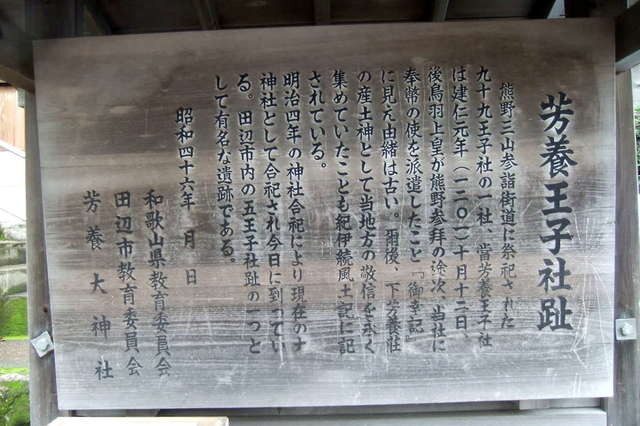 芳養王子社趾
熊野三山参詣街道に祭祀された
九十九王子社の一社、当芳養王子社
は建仁元年(一二〇一)十月十二日、
後鳥羽上皇が熊野参拜の途次、当社に
奉幣の使を派遣したこと『御幸記』
に見え由緒は古い。爾後、下芳養荘
の産土神として当地方の敬信を永く
集めていたことも紀伊続風土記に記
されている。
明治四年の神社合祀により現在の大
神社として合祀され今日に到ってい
る。田辺市内の五王子社趾の一つと
して有名な遺跡である。
昭和四十六年 月 日
和歌山県教育委員会
田辺市教育委員会
芳養大神社